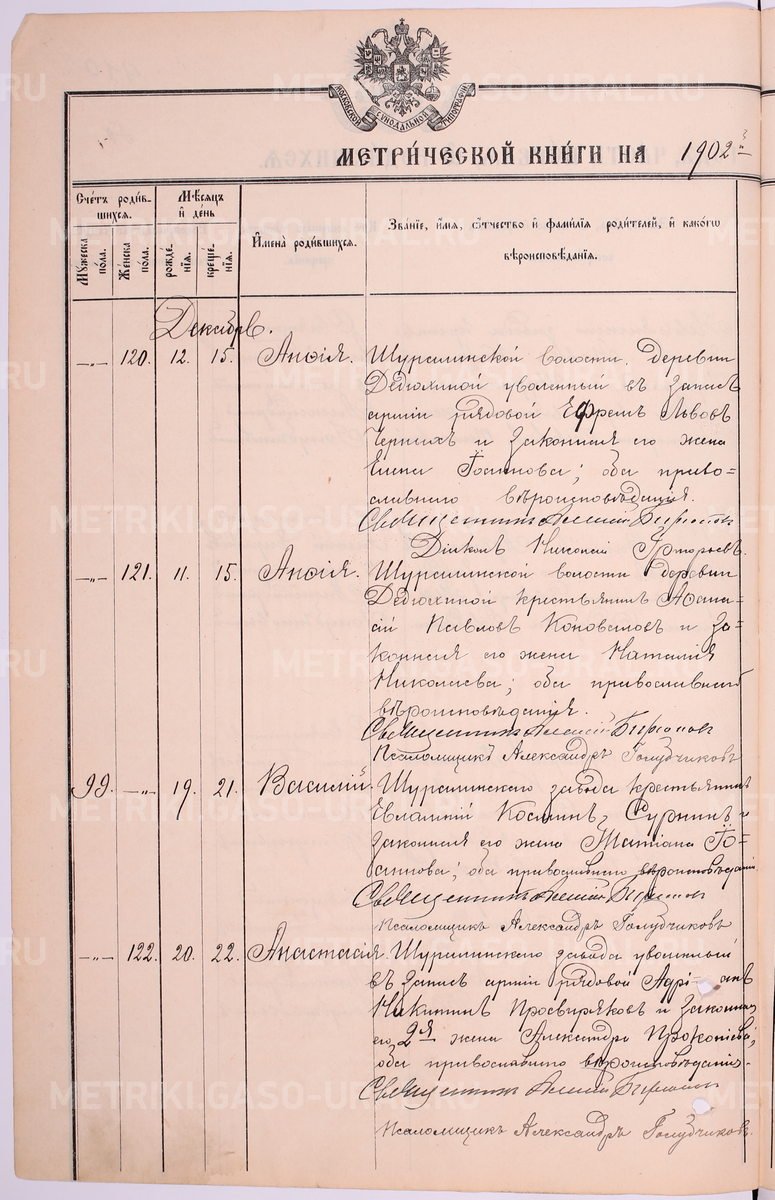 МОСКОВСКОЙ СѴНОДАЛЬНОЙ ТИПОГРАФІИ
МЕТРИ́ЧЕСКОЙ КНИ́ГИ НА 1902 й
Сче́тъ роди́в-
шихся.
Му́жеска пола.
Же́нска пола.
Мѣ́сяцъ и де́нь
рожде́нїя.
креще́нїя.
И҆мена̀ роди́вшихся.
Зва́нїе, и҆́мя, ѻ҆́тчество и҆ фами́лїя роди́телей, и҆ како́гѡ
вѣроисповѣ́данїя.
Декабрь.
—„— 120. 12. 15. Анѳія. Шуралинской волости деревни
Дедюхиной уволенный въ запасъ
арміи рядовой Ефремъ Львовъ
Черныхъ и законная его жена
Елена Іоаннова; оба право=
славнаго вѣроисповѣданія.
Священникъ Алексій
Діаконъ
—„— 121. 11. 15. Анѳія. Шуралинской волости деревни
Дедюхиной крестьянинъ Аѳана=
сій Павловъ Коноваловъ и за=
конная его жена Наталія
Николаева; оба православнаго
вѣроисповѣданія.
Священникъ Алексій
Псаломщикъ Александръ Голубчиковъ
99. —„— 19. 21. Василій. Шуралинскаго завода крестьянинъ
Евлампій Косминъ Суринъ и
законная его жена Татіана Іо=
аннова; оба православнаго вѣроисповѣданія
Священникъ Алексій
Псаломщикъ Александръ Голубчиковъ
—„— 122. 20. 22. Анастасія. Шуралинскаго завода уволенный
въ запасъ арміи рядовой Адріанъ
Никитинъ Просвиряковъ и законная
его 2я жена Александра Прокопіева;
оба православнаго вѣроисповѣданія.
Священникъ Алексій
Псаломщикъ Александръ Голубчиковъ.
METRIKI.GASO-URAL.RU